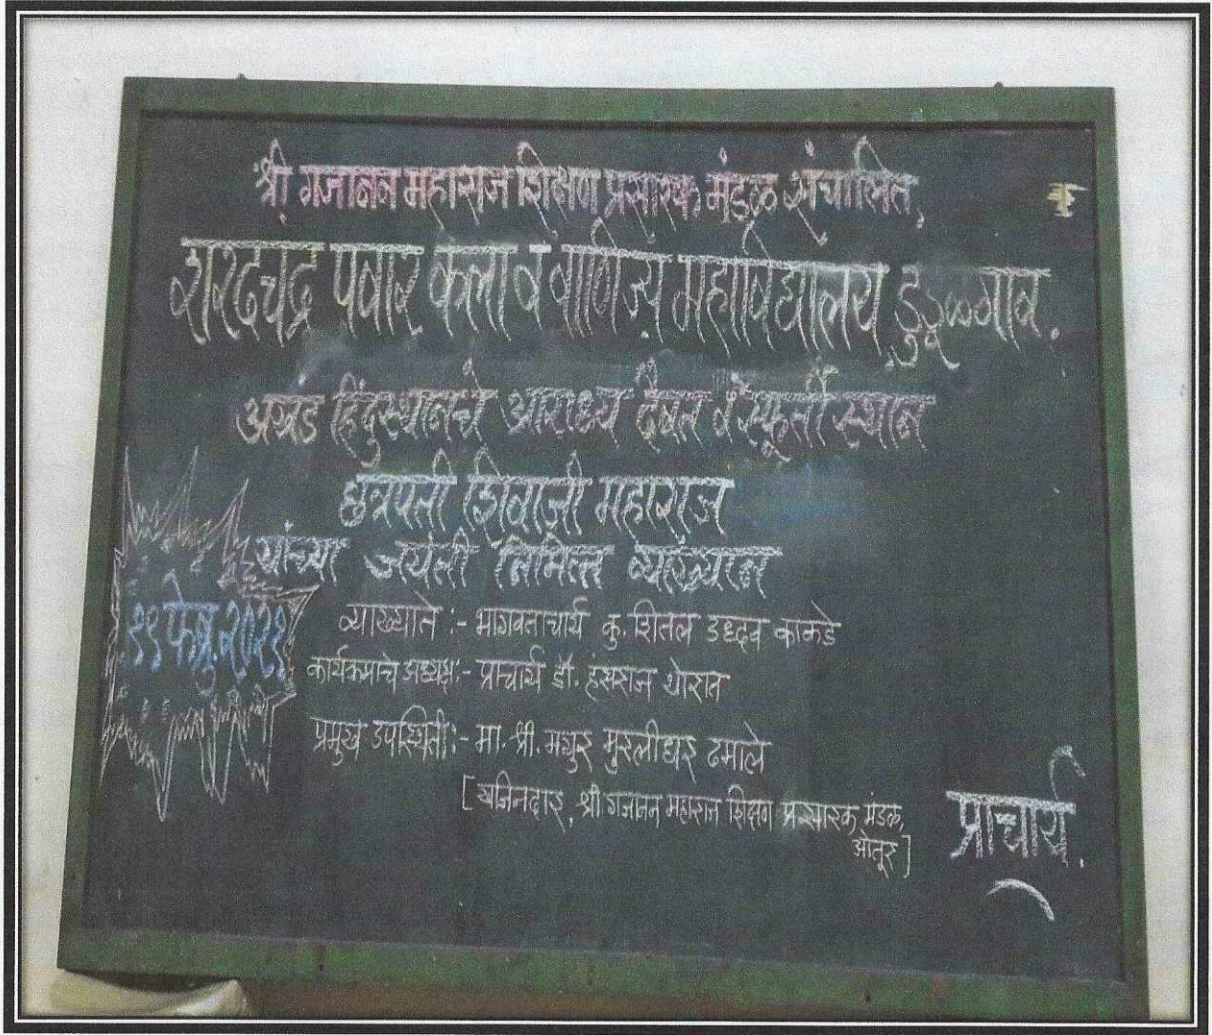 श्री गजानन महाराज शिक्षण प्रसारक मंडळ संचालित,
शरदचंद्र पवार कला व वाणिज्य महाविद्यालय, डुडूळगाव.
अखंड हिंदुस्थानचे आराध्य दैवत व स्फूर्ती स्थान
छत्रपती शिवाजी महाराज
यांच्या जयंती निमित्त व्याख्यान
१९ फेब्रु. २०२१
व्याख्याते :- भागवताचार्य कु. शितल उध्दव काकडे
कार्यक्रमाचे अध्यक्ष:- प्राचार्य डॉ. हंसराज थोरात
प्रमुख उपस्थिती:- मा. श्री. मयुर मुरलीधर ढमाले
[ खजिनदार, श्री गजानन महाराज शिक्षण प्रसारक मंडळ,
ओतूर ]
प्राचार्य.